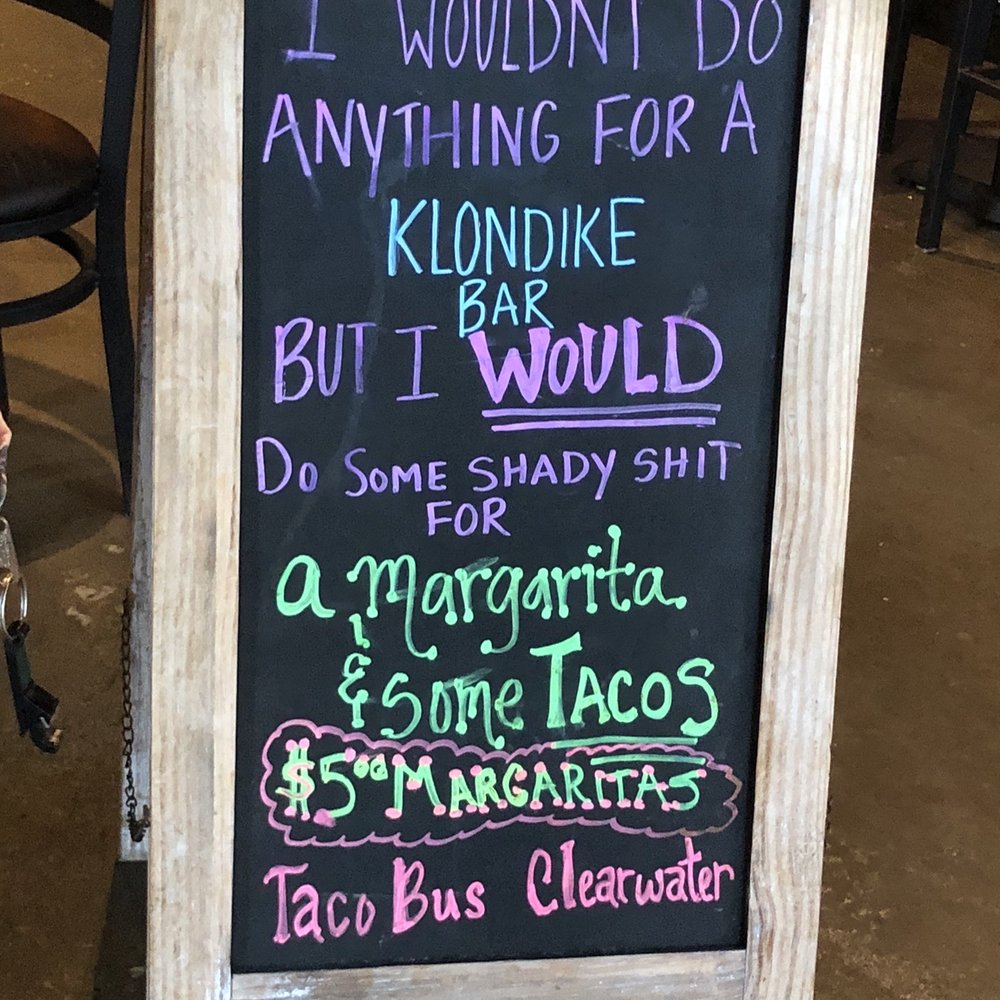 I WOULDNT DO
ANYTHING FOR A
KLONDIKE
BAR
BUT I WOULD
DO SOME SHADY SHIT
FOR
a margarita
& some TACOS
$5.00 MARGARITAS
Taco Bus Clearwater